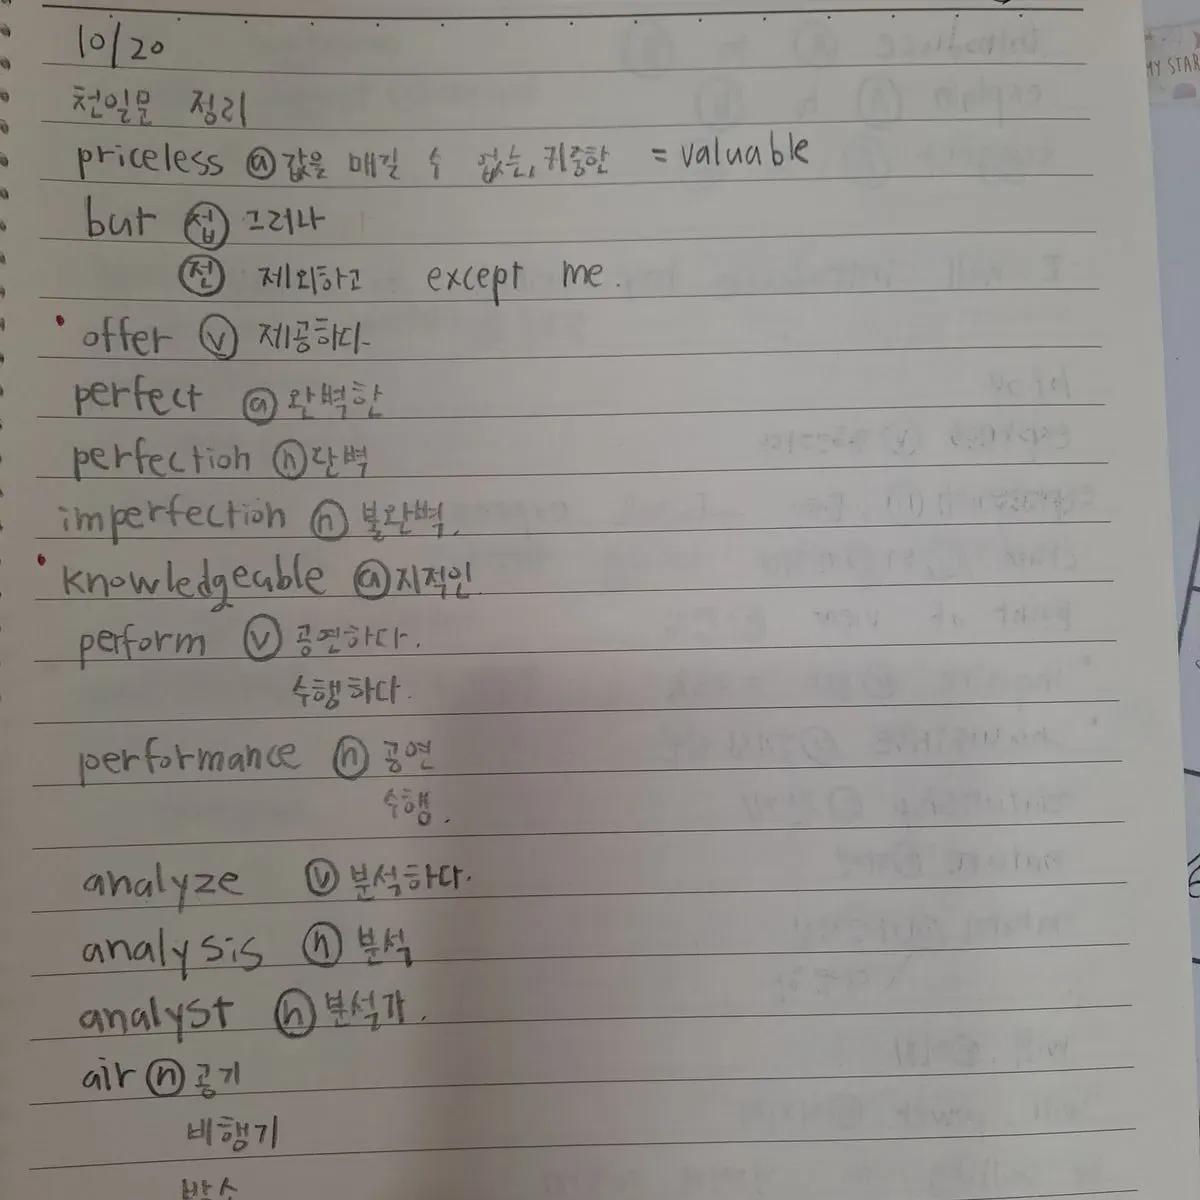 10/20
천일문 정리
priceless ⓐ 값을 매길 수 없는, 귀중한 = valuable
but 접 그러나
전 제외하고 except me.
offer ⓥ 제공하다
perfect ⓐ 완벽한
perfection ⓝ 단벽
imperfection ⓝ 불완벽.
knowledgeable ⓐ 지적인
perform ⓥ 공연하다.
수행하다.
performance ⓝ 공연
수행.
analyze ⓥ 분석하다.
analysis ⓝ 분석
analyst ⓝ 분석가.
air ⓝ 공기
비행기
방송
MY STAR